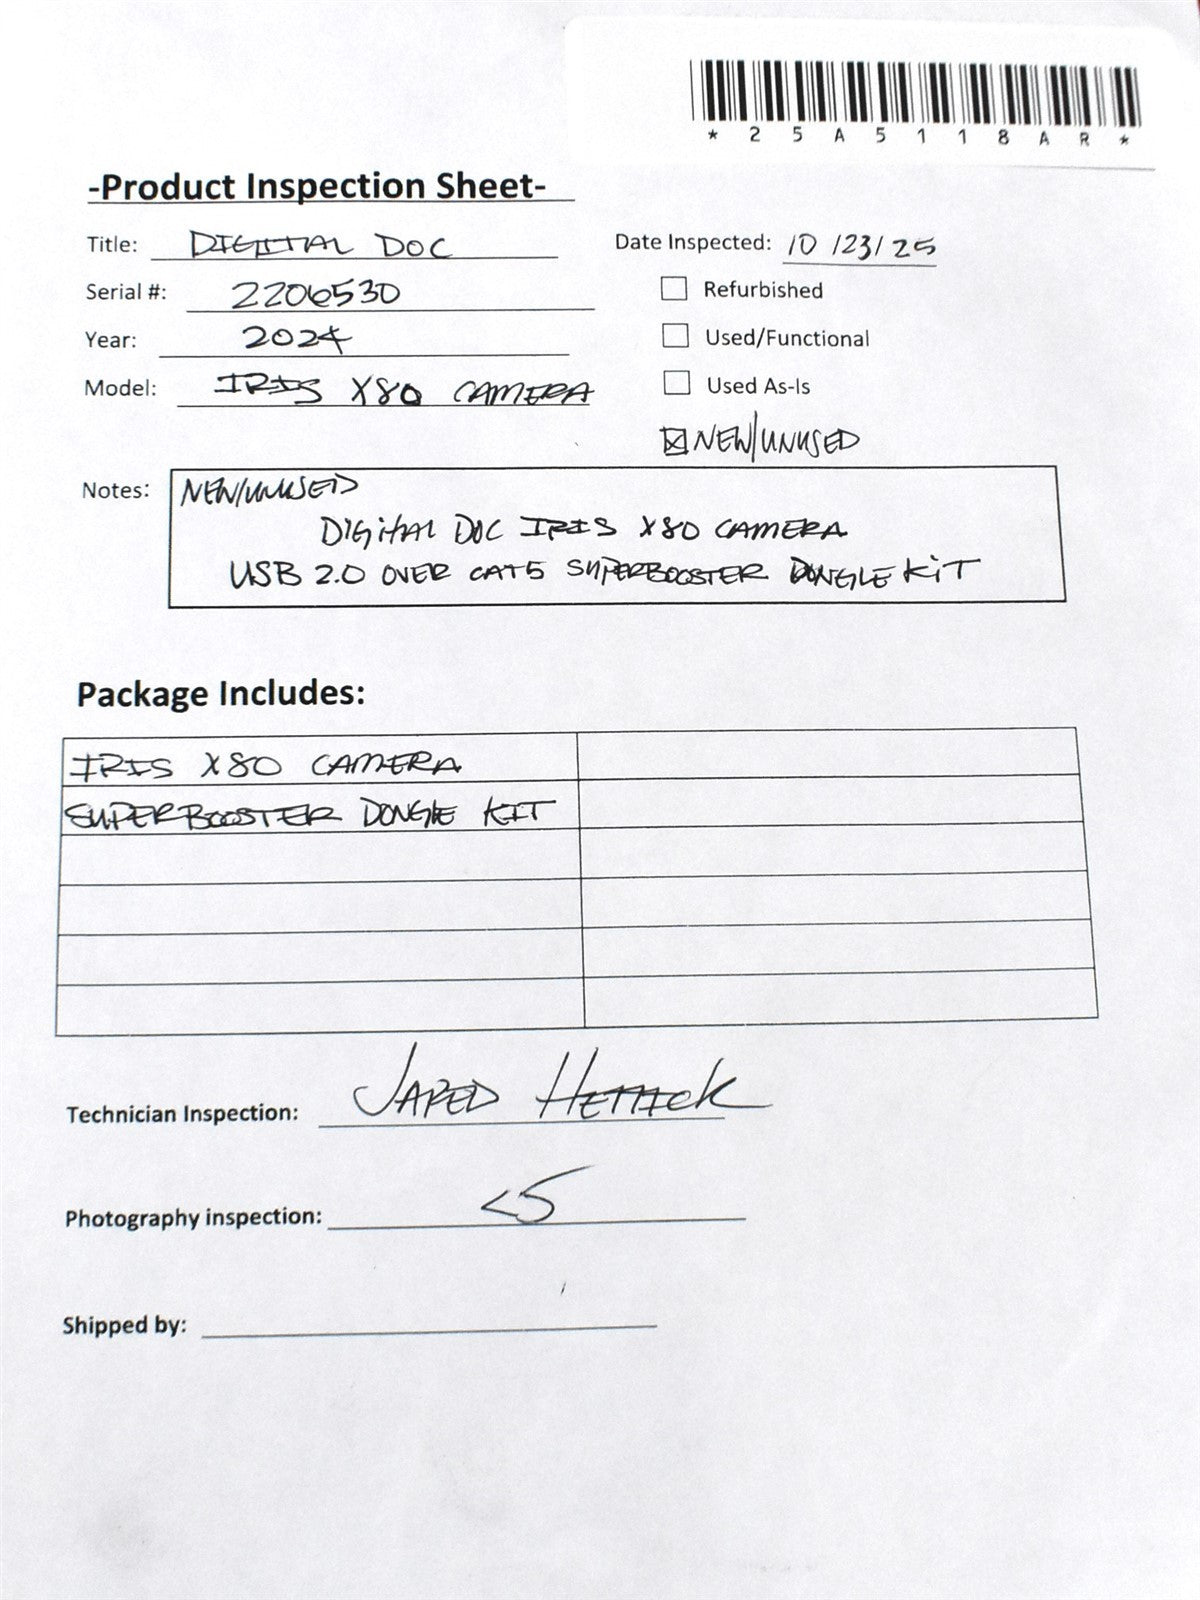 * 2 5 A 5 1 1 8 A R *
-Product Inspection Sheet-
Title: DIGITAL DOC
Date Inspected: 10/23/25
Serial #: 2206530
Refurbished
Year: 2024
Used/Functional
Model: IRIS X80 CAMERA
Used As-Is
NEW/UNUSED
Notes: NEW/UNUSED
DIGITAL DOC IRIS X80 CAMERA
USB 2.0 OVER CAT5 SUPERBOOSTER DONGLE KIT
Package Includes:
IRIS X80 CAMERA
SUPERBOOSTER DONGLE KIT
Technician Inspection: JARED HETTICK
Photography inspection:
Shipped by: